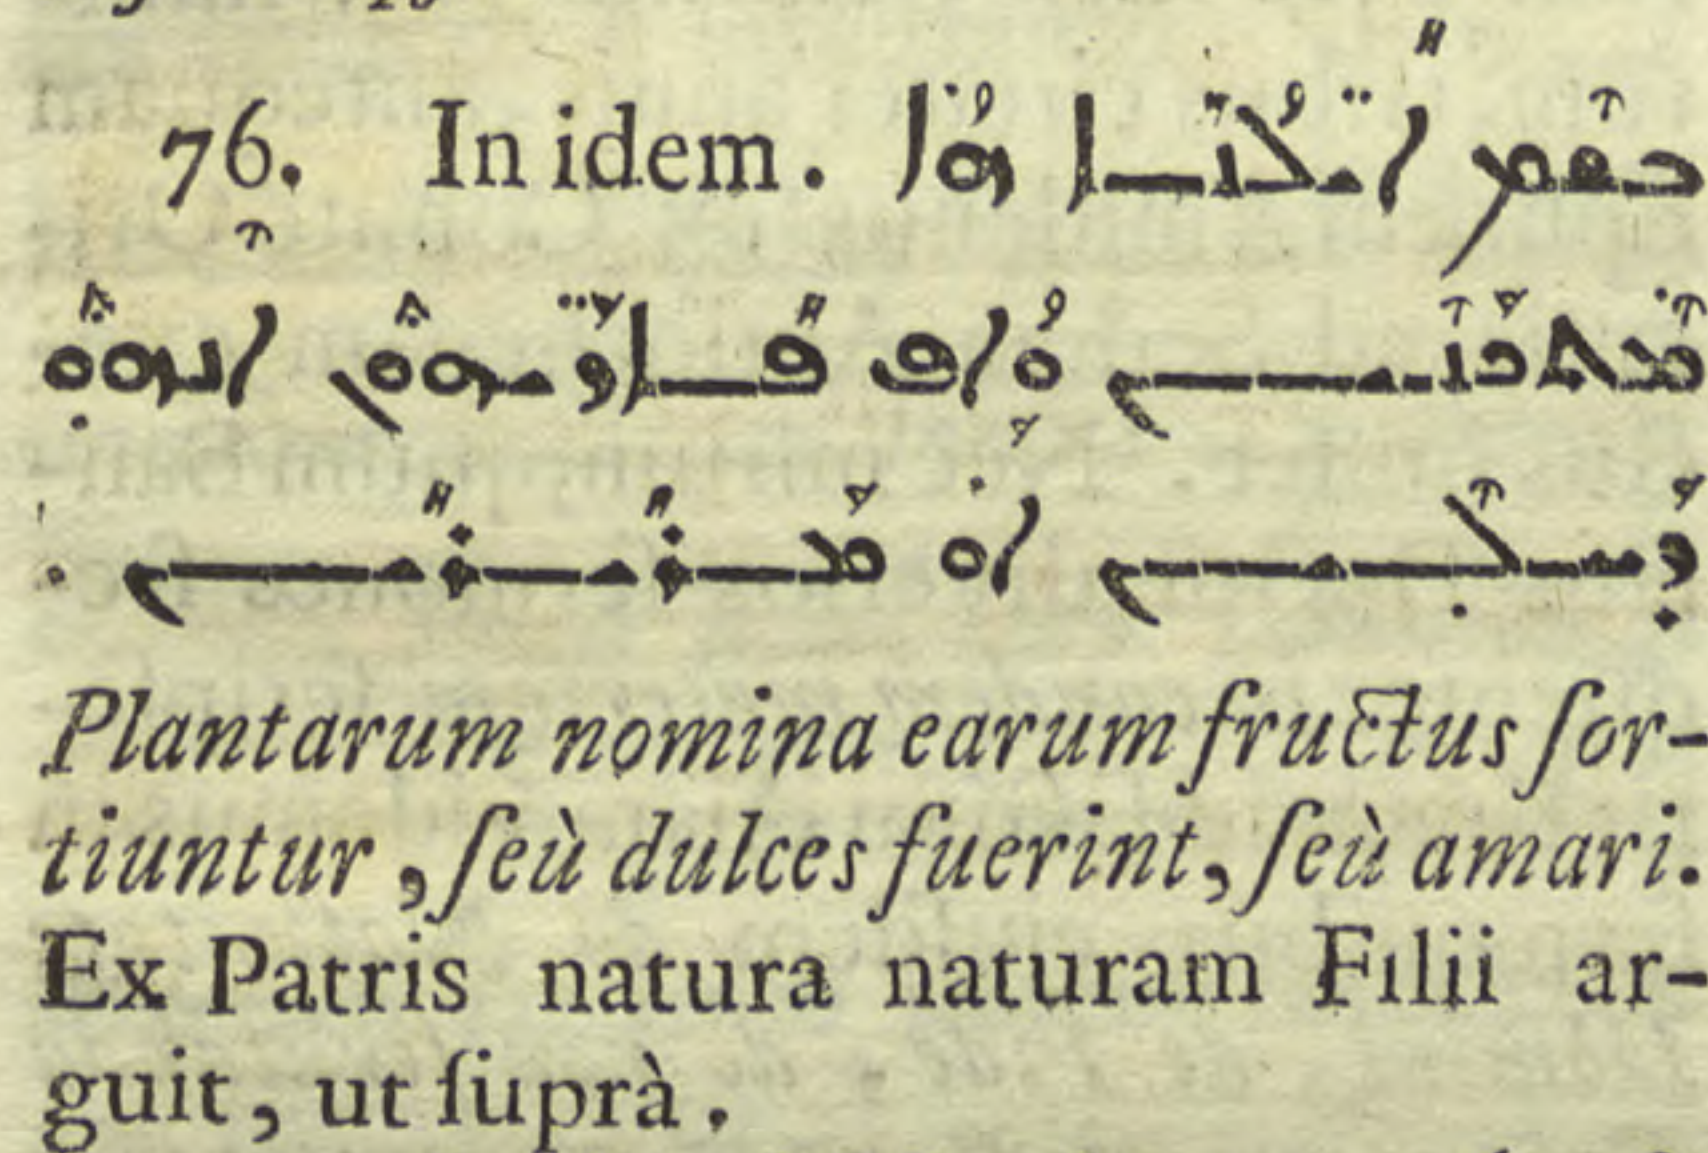 76. In idem. ܒܫܡ ܐܝ̈ܠܢܐ ܗܐ
ܡܬܟܢܝܢ ܘܐܦ ܦܐܪ̈ܝܗܘܢ ܐܢܗܘ
ܕܚܠܝܢ ܐܘ ܡܪܝܪܝܢ .
Plantarum nomina earum fructus ſor-
tiuntur, ſeù dulces fuerint, ſeù amari.
Ex Patris natura naturam Filii ar-
guit, ut ſuprà.